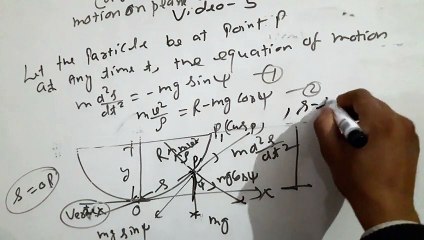 motion on plane Video-5
Let the Particle be at Point P
at Any time t, the equation of motion
m d²s/dt² = -mg sinψ — ①
m v²/ρ = R - mg cosψ — ②
, s=
R
P,
m d²s/dt²
y
s
P
ψ
mg cosψ
x
s = OP
Vertex
O
mg sinψ
mg